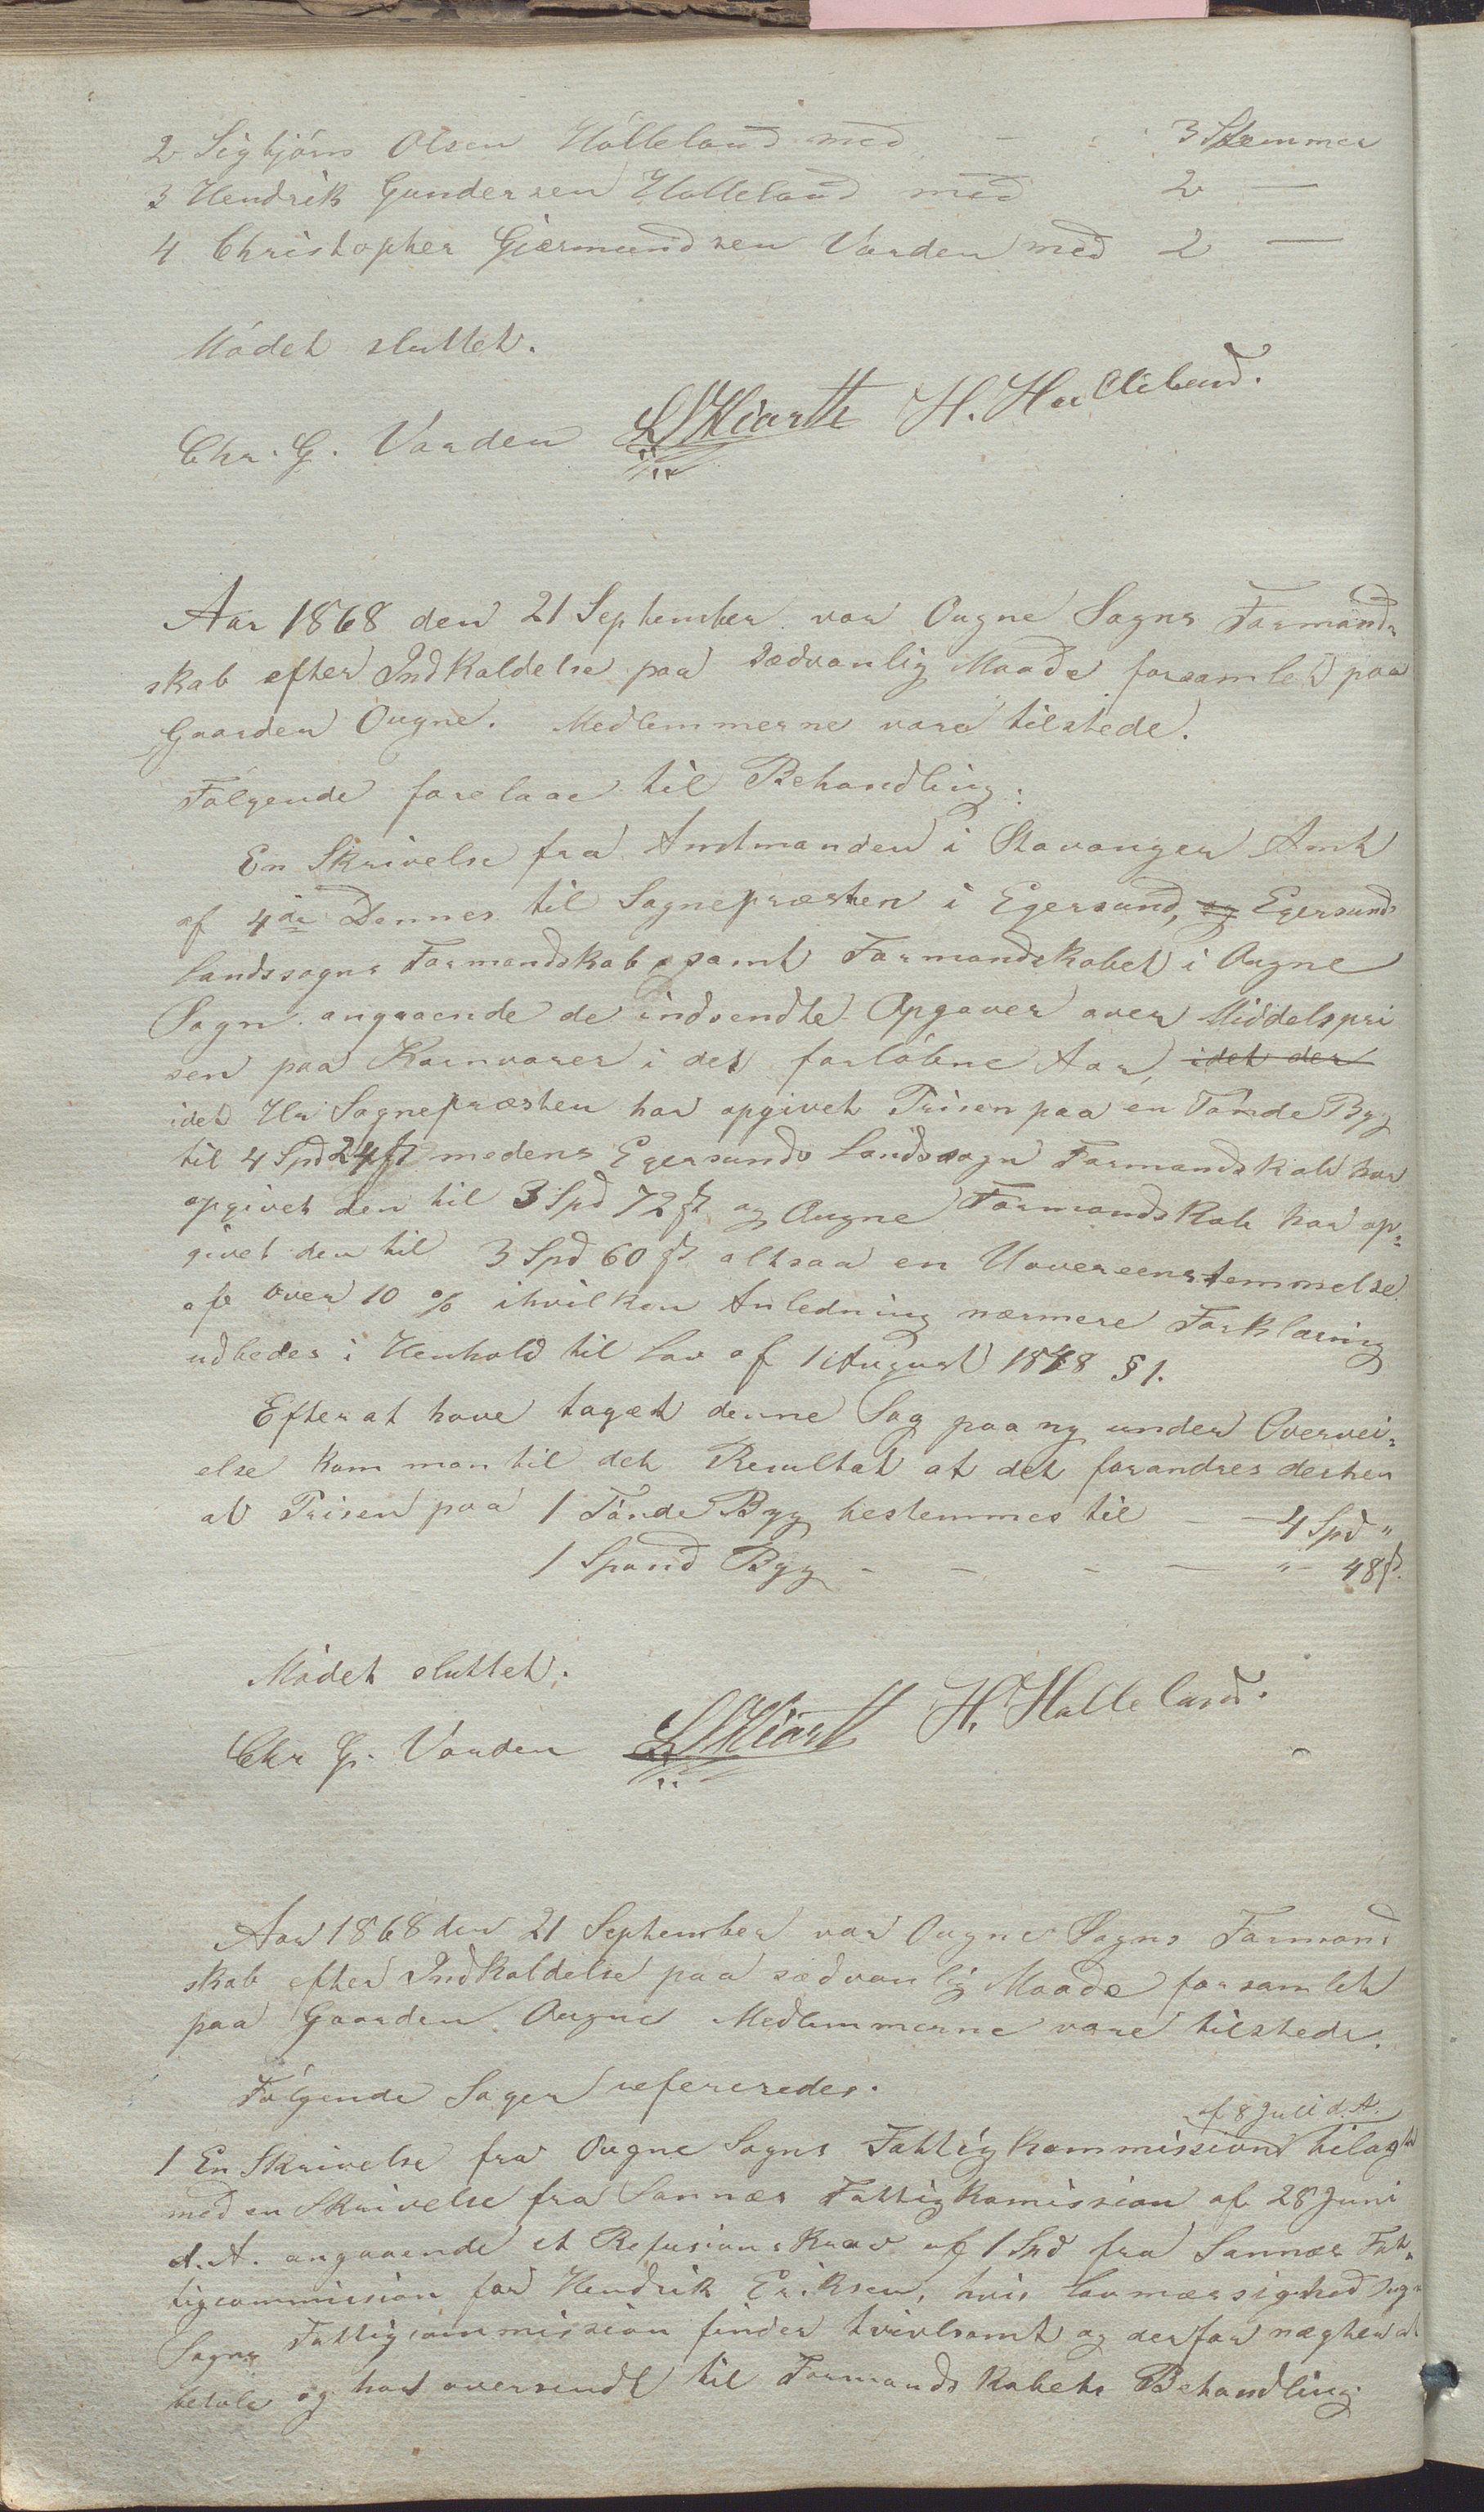 2 Sigbjörn Olsen Hölleland med - - 3 Stemmer
3 Hendrik Gundersen Hölleland med 2 —
4 Christopher Giermundsen Varden med 2 —
Mödet sluttet.
Chr. G. Varden H. Hölleland.
Aar 1868 den 21 September var Ougne Sogns Formand-
skab efter Indkaldelse paa sædvanlig Maade forsamlet paa
Gaarden Ougne. Medlemmerne vare tilstede.
Fölgende forelaae til Behandling:
En Skrivelse fra Amtmanden i Stavanger Amt
af 4de Dennes til Sognepræsten i Egersund, og Egersunds
landssogns Formandskab, samt Formandskabet i Ougne
Sogn angaaende de indsendte Opgaver over Middelspri
sen paa Kornvarer i det forlöbne Aar, idet der
idet Hr Sognepræsten har opgivet Prisen paa en Tönde Byg
til 4 Spd 24 ß medens Egersunds Landssogn Formandskab har
opgivet den til 3 Spd 72 ß og Ougne Formandskab har op-
givet den til 3 Spd 60 ß altsaa en Uovereenstemmelse
af over 10 % ihvilken Anledning nærmere Forklaring
udbedes i Henhold til Lov af 1 August 1848 § 1.
Efter at have taget denne Sag paa ny under Overvei-
else kom man til det Resultat at det forandres derhen
at Prisen paa 1 Tönde Byg bestemmes til - - 4 Spd "
1 Spand Byg - - - - " - 48 ß.
Mödet sluttet.
Chr G. Varden H. Hölleland.
Aar 1868 den 21 September var Ougne Sogns Formand
skab efter Indkaldelse paa sædvanlig Maade forsamlet
paa Gaarden Ougne Medlemmerne vare tilstede.
Fölgende Sager refereredes.
af 8 Juli d. A.
1 En Skrivelse fra Ougne Sogns Fattigkommission bilagt
med en Skrivelse fra Sannæs Fattigkomission af 28 Juni
d. A. angaaende et Refusionskrav af 1 Spd fra Sannæs Fat-
tigcommission for Hendrik Eriksen, hvis Lovmæssighed
Sogns Fattigcommission finder tvivlsomt og derfor nægter at
betale og har oversendt til Formandskabets Behandling